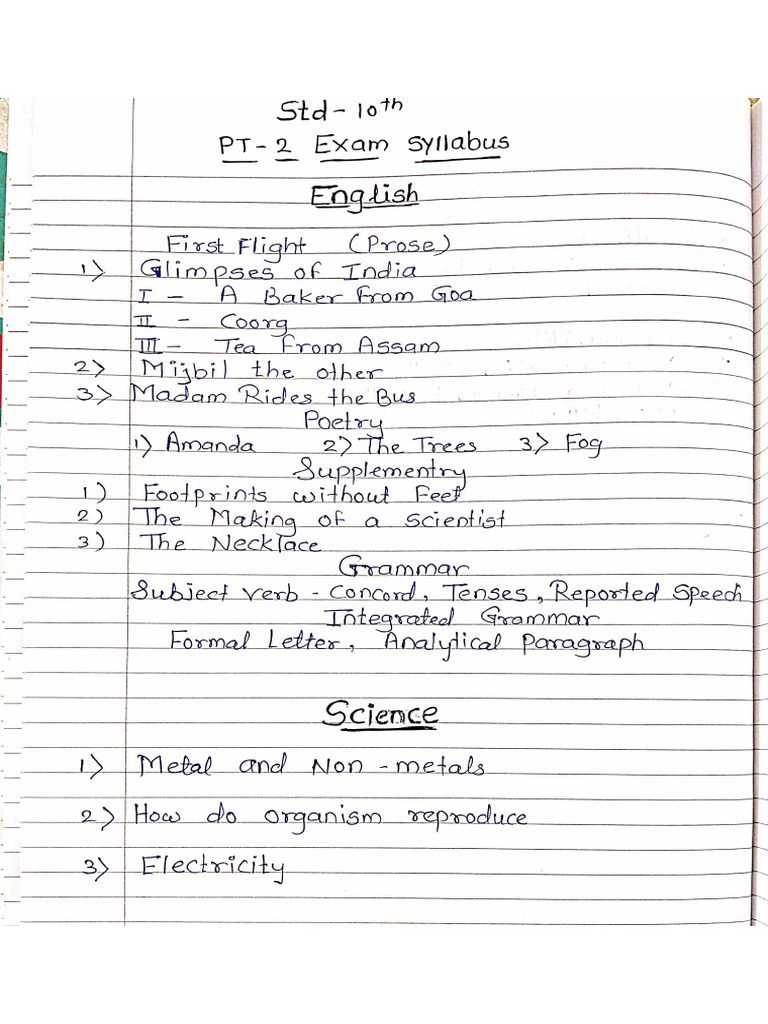 Std - 10th
PT - 2 Exam Syllabus
English
First Flight (Prose)
1) Glimpses of India
I - A Baker From Goa
II - Coorg
III - Tea From Assam
2) Mijbil the other
3) Madam Rides the Bus
Poetry
1) Amanda 2) The Trees 3) Fog
Supplementry
1) Footprints without Feet
2) The Making of a scientist
3) The Necklace
Grammar
Subject verb - Concord, Tenses, Reported Speech
Integrated Grammar
Formal Letter, Analytical Paragraph
Science
1) Metal and Non - metals
2) How do organism reproduce
3) Electricity